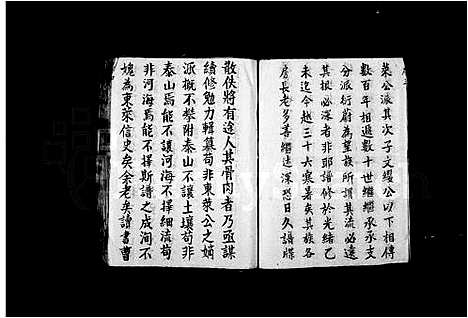 萊公派其次子文纓公以下相傳
數百年相遞數十世繼繼承承支
分派衍蔚為望族所謂其流必遠
其根必深者非耶譜修於光緒乙
未迄今越三十六寒暑矣其族各
房長老多善繼述深恐日久譜牒
散佚將有途人其骨肉者乃亟謀
續修勉力輯纂苟非東萊公之嫡
派概不攀附泰山不讓土壤苟非
泰山焉能不讓河海不擇細流苟
非河海焉能不擇斯譜之成洵不
媿為東萊信史矣余老矣讀書曹